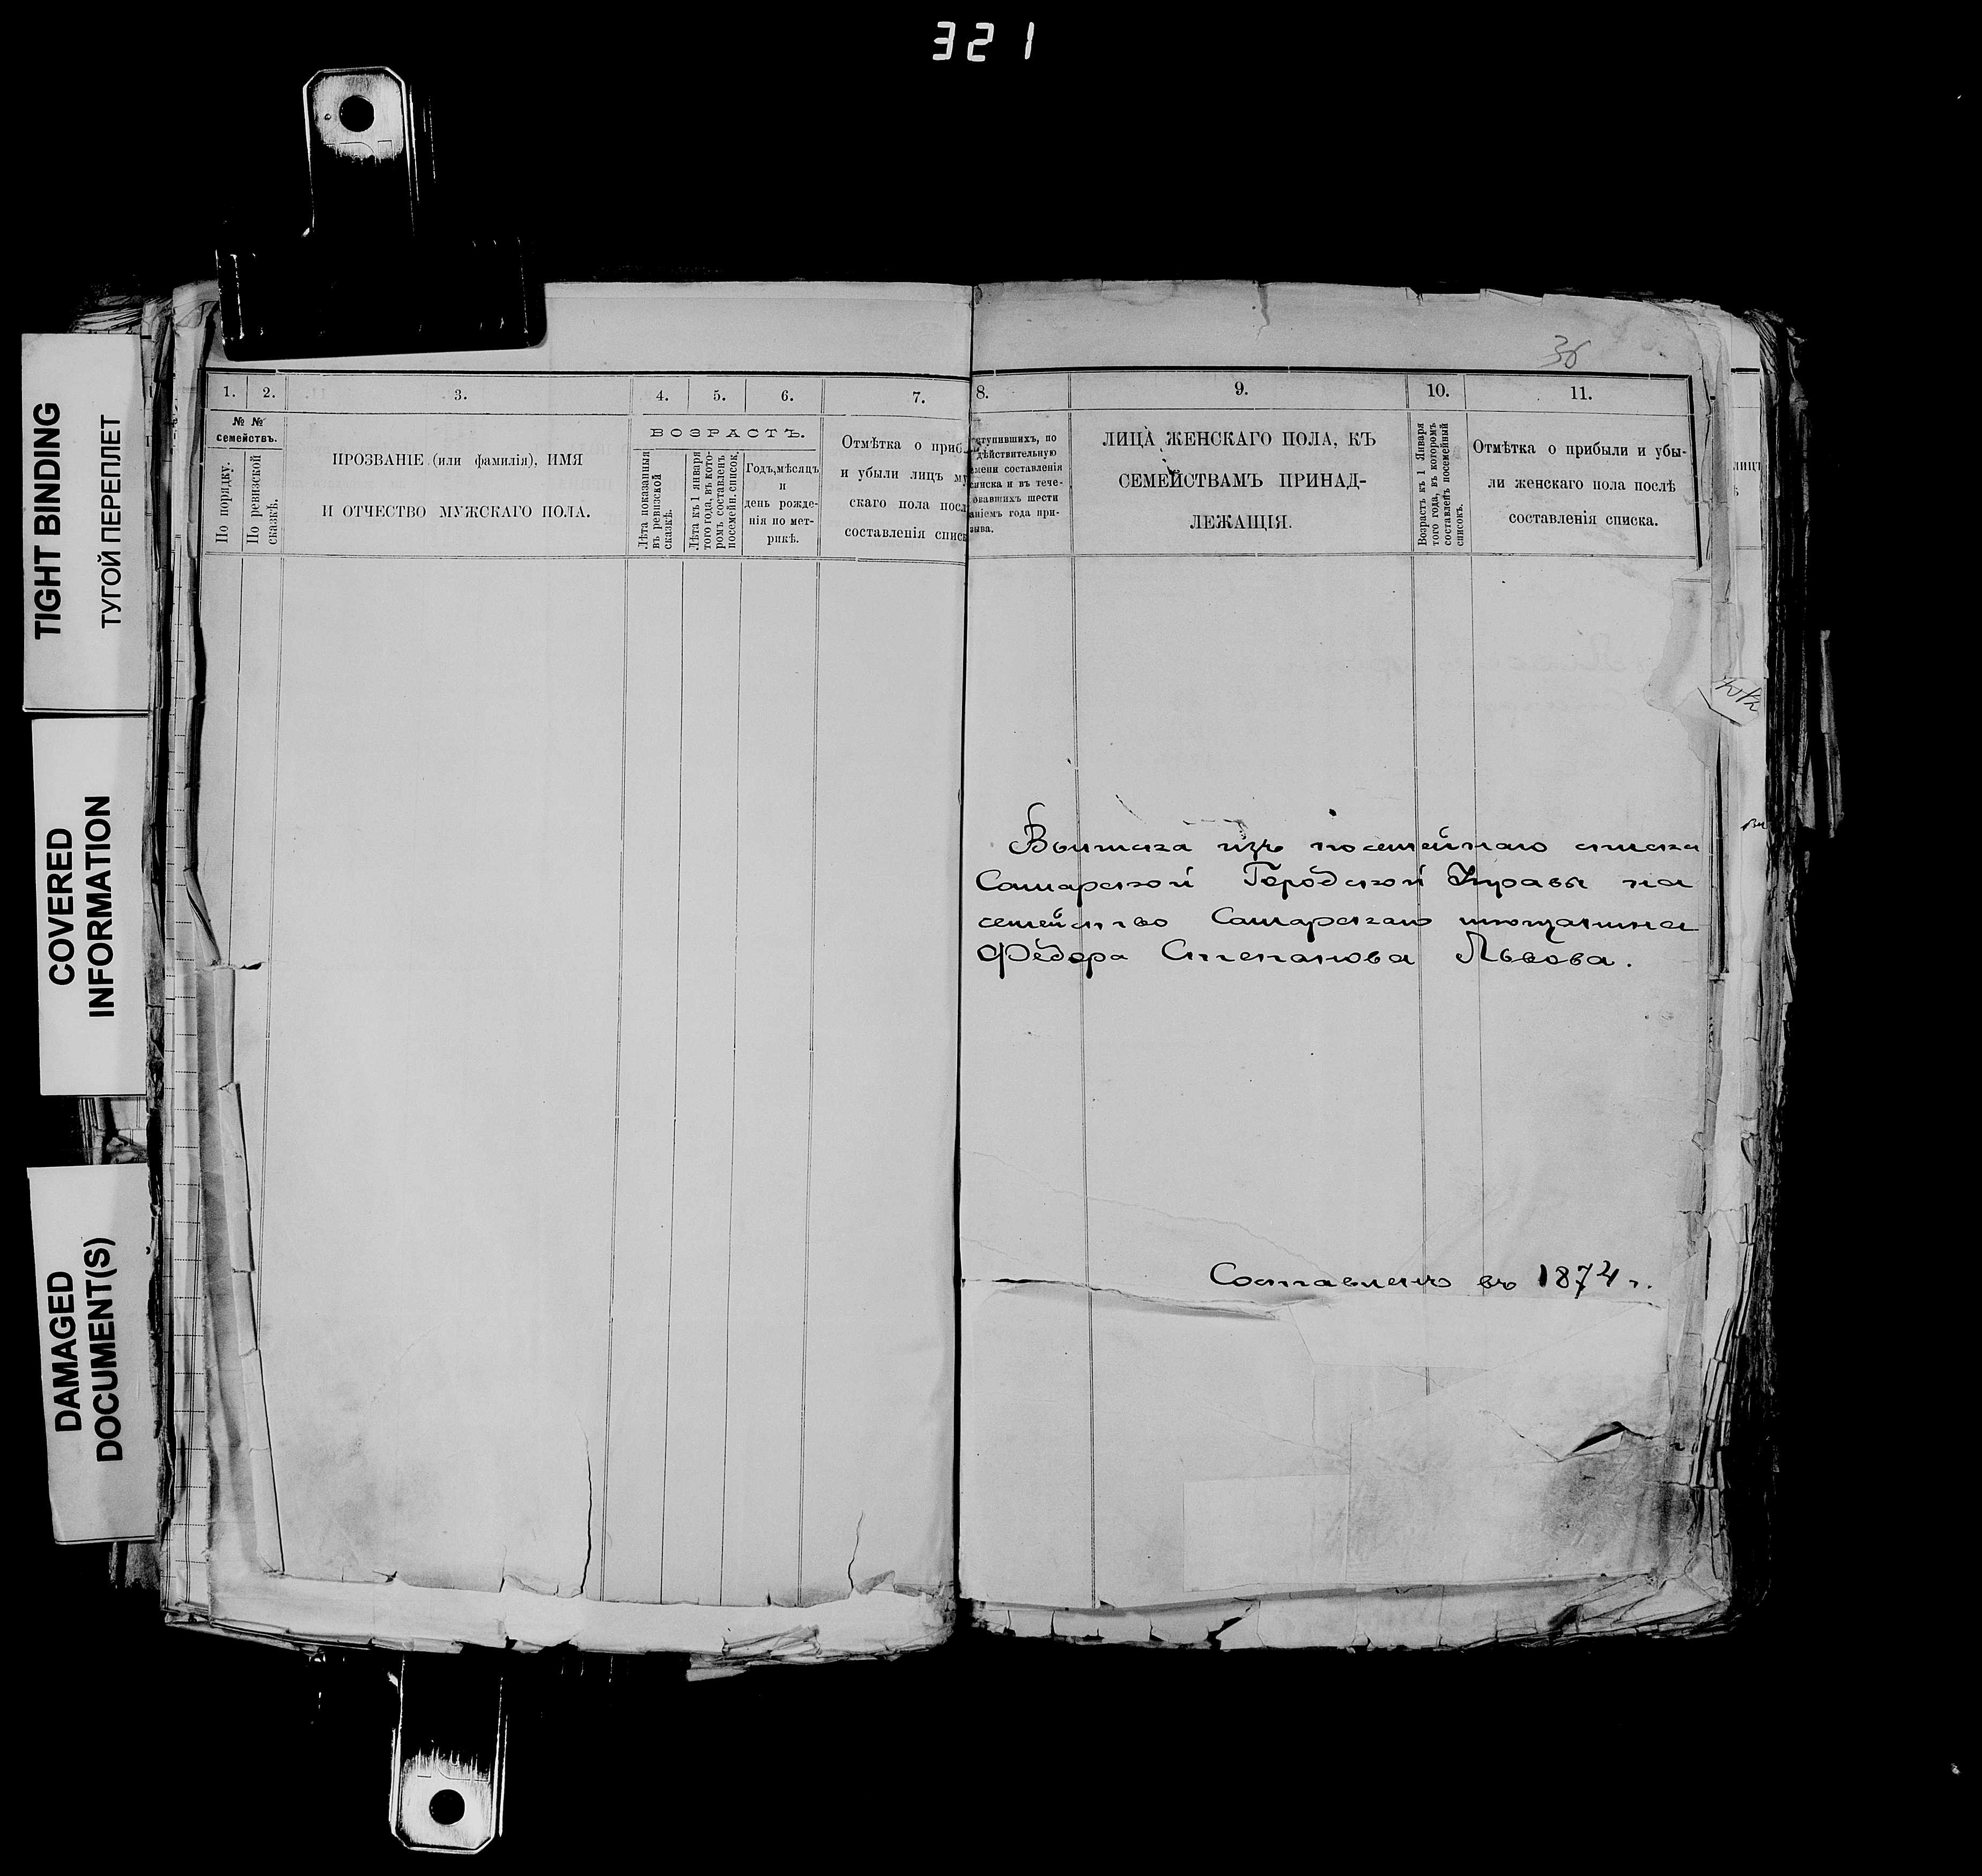 321
TIGHT BINDING
ТУГОЙ ПЕРЕПЛЕТ
COVERED
INFORMATION
DAMAGED
DOCUMENT(S)
1.
2.
3.
4.
5.
6.
7.
№ №
семействъ.
По порядку.
По ревизской
сказкѣ.
ПРОЗВАНІЕ (или фамилія), ИМЯ
И ОТЧЕСТВО МУЖСКАГО ПОЛА.
ВОЗРАСТЪ.
Лѣта показанныя
въ ревизской
сказкѣ.
Лѣта къ 1 января
того года, въ кото-
ромъ составленъ
посемейн. списокъ,
Годъ, мѣсяцъ
и
день рожде-
нія по мет-
рикѣ.
Отмѣтка о приб
и убыли лицъ му
скаго пола посл
составленія списк
36
8.
9.
10.
11.
ступившихъ, по
дѣйствительную
мени составленія
списка и въ тече-
овавшихъ шести
аніемъ года при-
зыва.
ЛИЦА ЖЕНСКАГО ПОЛА, КЪ
СЕМЕЙСТВАМЪ ПРИНАД-
ЛЕЖАЩІЯ.
Возрастъ къ 1 Января
того года, въ которомъ
составленъ посемейный
списокъ.
Отмѣтка о прибыли и убы-
ли женскаго пола послѣ
составленія списка.
лицъ
Выписка изъ посемейнаго списка
Самарской Городской Управы на
семейство Самарскаго мѣщанина
Ѳедора Степанова Львова.
Составленъ въ 1874 г.